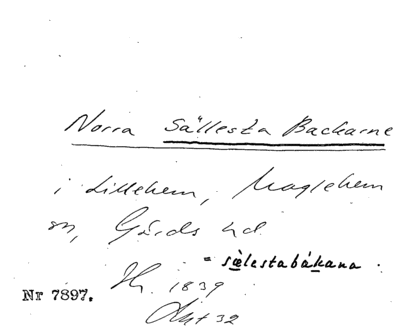 Norra Sällesta Backarne
i Lillehem, Maglehem
sn, Gärds hd.
= sèlestabákana.
Nr 7897. Hr. 1839
Akt 32